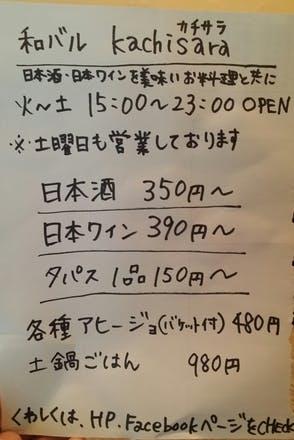 カチサラ
和バル kachisara
日本酒・日本ワインを美味いお料理と共に
火～土 15:00～23:00 OPEN
※土曜日も営業しております
日本酒 350円～
日本ワイン 390円～
タパス 1品 150円～
各種アヒージョ(バケット付) 480円
土鍋ごはん 980円
くわしくは、HP.FacebookページをCHECK